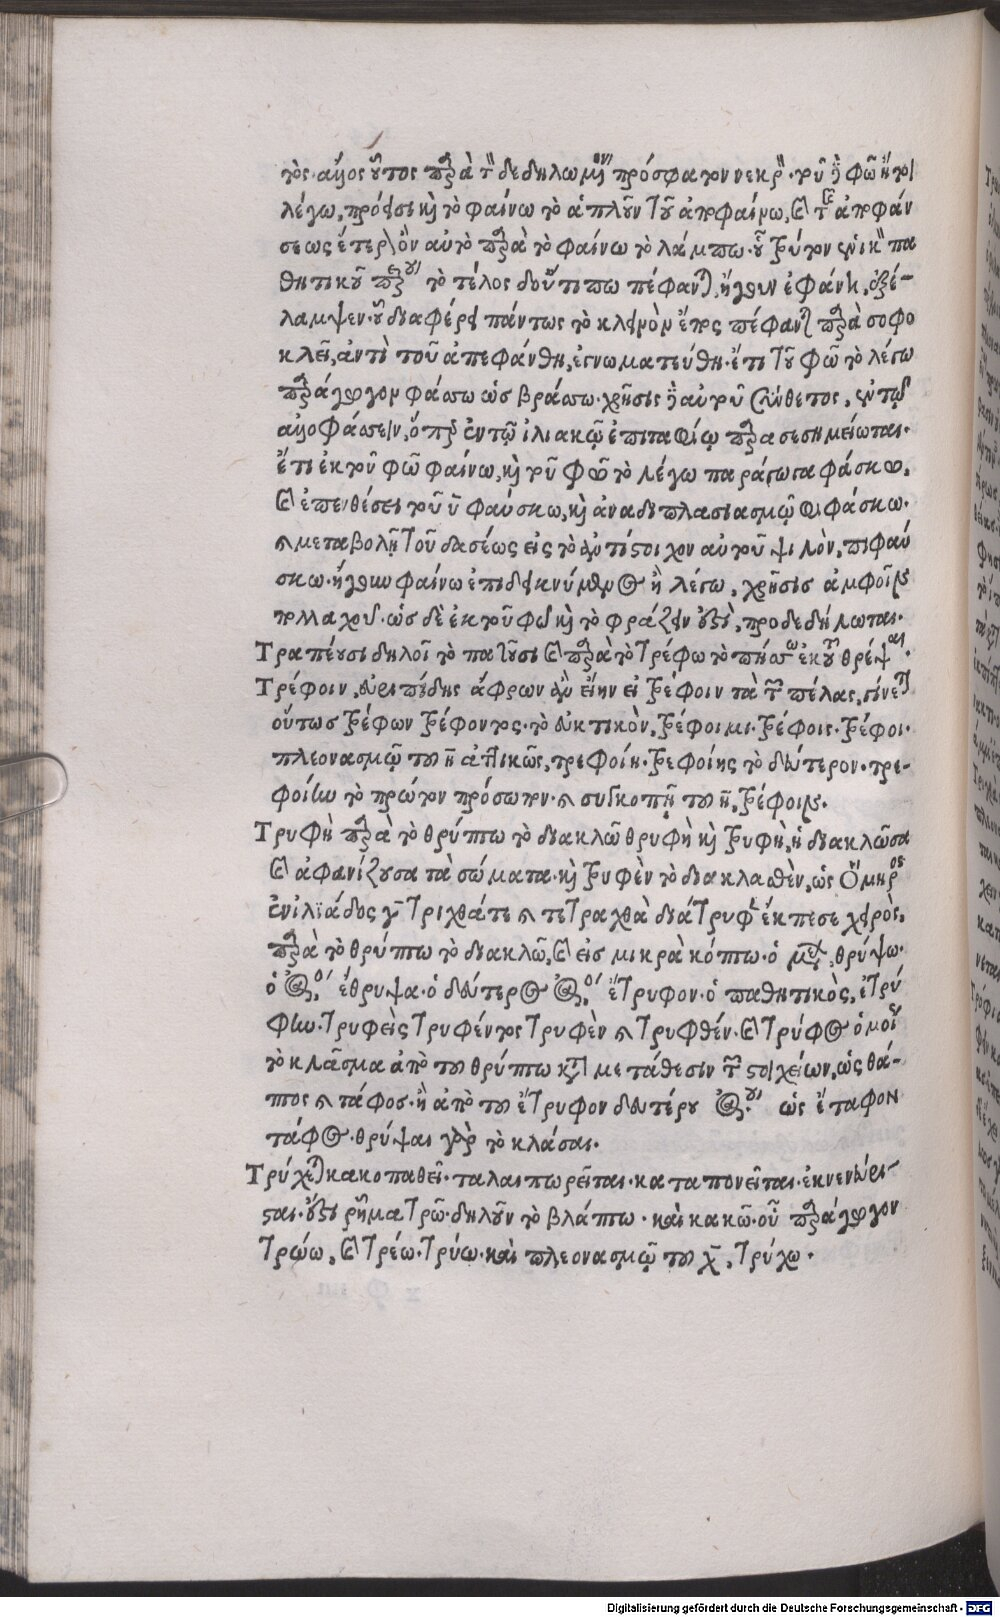 τος. αἷμος οὗτος παρὰ τ δεδηλωμένον πρόσφατον νεκρ. τοῦ φῶ ἢ τὸ
λέγω, πρόεισι καὶ τὸ φαίνω τὸ ἁπλοῦν τοῦ ἀποφαίνω, καὶ τῆς ἀποφάν
σεως ἕτερον ὂν αὐτὸ παρὰ τὸ φαίνω τὸ λάμπω. οὗ τρίτον ἑνικ πα
θητικοῦ παρ τὸ τέλος δοῦναί πω πέφανται, ἤγουν ἐφάνη, ἐξέ-
λαμψεν. οὗ διαφέρει πάντως τὸ πέφανται παρὰ σοφο
κλεῖ, ἀντὶ τοῦ ἀπεφάνθη, ἐγνωματεύθη. ἔτι τοῦ φῶ τὸ λέγω
παράγωγον φάσσω ὡς βράσσω. χρῆσις αὐτοῦ σύνθετος, ἐν τῷ
ἐν τῷ ἰλιακῷ ἐπιταφίῳ παρασεσημείωται.
ἔτι ἐκ τοῦ φῶ φαίνω, καὶ τοῦ φῶ τὸ λέγω παράγωγα φάσκω,
καὶ ἐπενθέσει τοῦ υ φαύσκω, καὶ ἀναδιπλασιασμῷ φιφάσκω.
καὶ μεταβολῇ τοῦ δασέως εἰς τὸ ἀντίστοιχον αὐτοῦ ψιλὸν, πιφαύ
σκω. ἤγουν φαίνω ἐπιδεικνύμενος ἢ λέγω, χρῆσις ἀμφοῖν
πολλαχοῦ. ὡς δὲ ἐκ τοῦ φῶ καὶ τὸ φράζειν ἐστὶ, προδεδήλωται.
Τραπέουσι δηλοῖ τὸ πατοῦσι καὶ παρὰ τὸ τρέφω τὸ πήσσω ἐκ θρέψαι.
Τρέφοιν, εὐριπίδης ἄφρων ἂν εἴην εἰ τρέφοιν τὰ τῶν πέλας, γίνεται
οὕτως τρέφων τρέφοντος. τὸ εὐκτικὸν, τρέφοιμι. τρέφοις. τρέφοι.
πλεονασμῷ τοῦ η ἀττικῶς, τρεφοίη. τρεφοίης τὸ δεύτερον. τρε-
φοίην τὸ πρῶτον πρόσωπον. καὶ συγκοπῇ τοῦ η, τρέφοιν.
Τρυφὴ παρὰ τὸ θρύπτω τὸ διακλῶ θρυφὴ καὶ τρυφὴ, ἡ διακλῶσα
καὶ ἀφανίζουσα τὰ σώματα. καὶ τρυφὲν τὸ διακλασθὲν, ὡς Ὅμηρος
ἐν ἰλιάδος γ Τριχθάτε καὶ τετραχθὰ διατρυφὲν ἔκπεσε χειρὸς.
παρὰ τὸ θρύπτω τὸ διακλῶ, καὶ εἰς μικρὰ κόπτω. ὁ μέλλων, θρύψω.
ὁ ἀόριστος, ἔθρυψα. ὁ δεύτερος ἀόριστος, ἔτρυφον. ὁ παθητικὸς, ἐτρύ
φην. τρυφεὶς τρυφέντος τρυφὲν καὶ τρυφθέν. καὶ τρύφος ὁμοῦ
τὸ κλάσμα ἀπὸ τοῦ θρύπτω κατὰ μετάθεσιν τῶν στοιχείων, ὡς θά-
πτος καὶ τάφος. ἢ ἀπὸ τοῦ ἔτρυφον δευτέρου ἀορίστου ὡς ἔταφον
τάφος. θρύψαι γὰρ τὸ κλάσαι.
Τρύχεται κακοπαθεῖ. ταλαιπωρεῖται. καταπονεῖται. ἐκνενεύρι-
σται. ἔστι ῥῆμα τρῶ. δηλοῦν τὸ βλάπτω. καὶ κακῶ. οὗ παράγωγον
τρώω, καὶ τρέω. τρύω. καὶ πλεονασμῷ τοῦ χ, τρύχω.
Digitalisierung gefördert durch die Deutsche Forschungsgemeinschaft - DFG